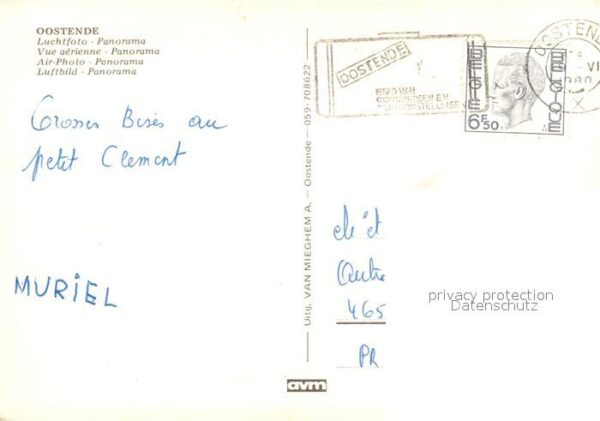 OOSTENDE
Luchtfoto - Panorama
Vue aérienne - Panorama
Air-Photo - Panorama
Luftbild - Panorama
OOSTENDE
STAD VAN
OOSTENDE
VI
1980
X
BELGIE BELGIQUE
6F50
Grosses Bises au
petit Clement
MURIEL
Uitg. VAN MIEGHEM A. — Oostende — 059-708622
avm
465
PR
privacy protection
Datenschutz